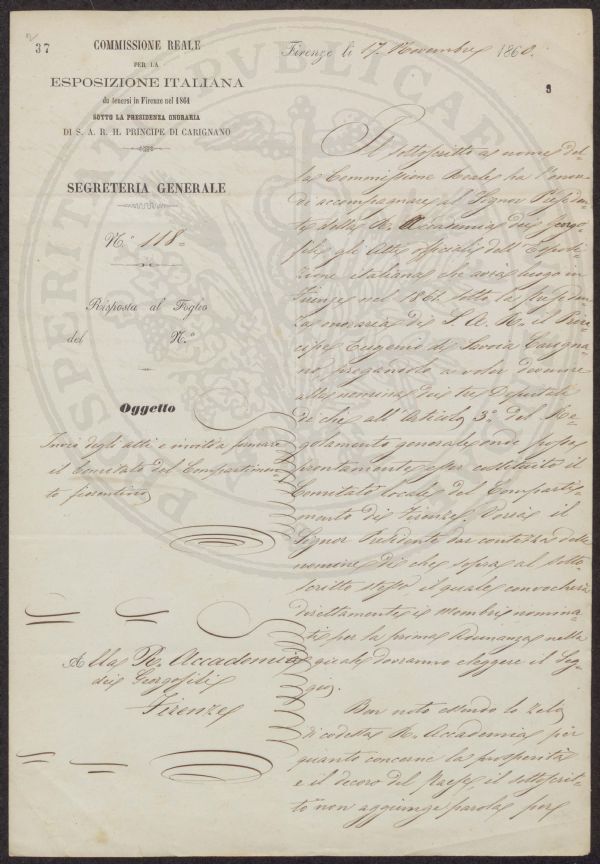 37
COMMISSIONE REALE
PER LA
ESPOSIZIONE ITALIANA
da tenersi in Firenze nel 1861
SOTTO LA PRESIDENZA ONORARIA
DI S. A. R. IL PRINCIPE DI CARIGNANO
SEGRETERIA GENERALE
N.º 118=
Risposta al Foglio
del N.º
Oggetto
Invio degli atti e invito a formare
il Comitato del Compartimen
to fiorentino
Alla R. Accademia
dei Georgofili
Firenze
Firenze li 17 Novembre 1860.
9
Il sottoscritto a nome del-
la Commissione Reale ha l'onore
di accompagnare al Signor Presiden-
te della R. Accademia dei Georgo-
fili gli Atti officiali dell'Esposi-
zione italiana che avrà luogo in
Firenze nel 1861 sotto la presiden
za onoraria di S. A. R. il Prin-
cipe Eugenio di Savoia Carigna-
no, pregandolo a voler devenire
alla nomina dei tre Deputati
di che all'Articolo 3º del Re-
golamento generale onde possa
prontamente esser costituito il
Comitato locale del Comparti-
mento di Firenze. Vorrà il
Signor Presidente dar contezza delle
nomine di che sopra al sotto-
scritto stesso, il quale convocherà
direttamente i Membri nomina-
ti per la prima Adunanza nella
quale dovranno eleggere il Seg-
gio.
Ben noto essendo lo zelo
di codesta R. Accademia per
quanto concerne la prosperità
e il decoro del Paese, il sottoscrit-
to non aggiunge parola per
PROSPERITATI PVBLICAE